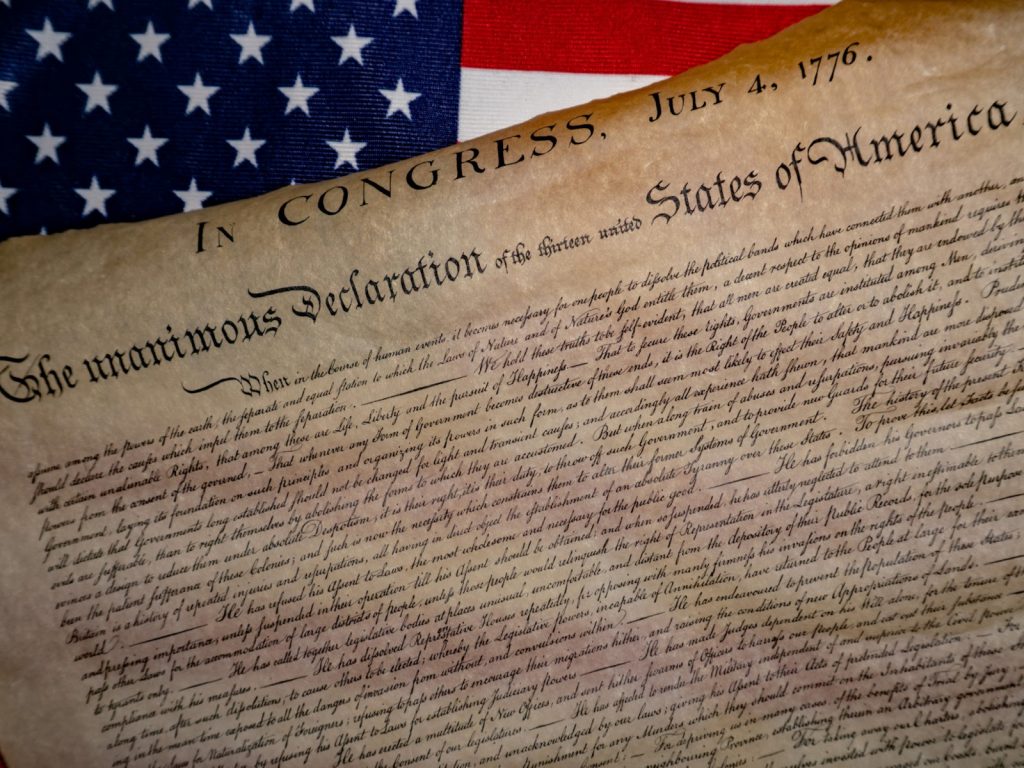 In Congress, July 4, 1776.
The unanimous Declaration of the thirteen united States of America
When in the Course of human events, it becomes necessary for one people to dissolve the political bands which have connected them with another, and
assume among the powers of the earth, the separate and equal station to which the Laws of Nature and of Nature's God entitle them, a decent respect to the opinions of mankind requires
should declare the causes which impel them to the separation. — We hold these truths to be self-evident, that all men are created equal, that they are endowed by
with certain unalienable Rights, that among these are Life, Liberty and the pursuit of Happiness.— That to secure these rights, Governments are instituted among Men, deriving
powers from the consent of the governed,— That whenever any Form of Government becomes destructive of these ends, it is the Right of the People to alter or to abolish it, and to
Government, laying its foundation on such principles and organizing its powers in such form, as to them shall seem most likely to effect their Safety and Happiness.
will dictate that Governments long established should not be changed for light and transient causes; and accordingly all experience hath shewn, that mankind are more disposed
evils are sufferable, than to right themselves by abolishing the forms to which they are accustomed. But when a long train of abuses and usurpations, pursuing invariably the
evinces a design to reduce them under absolute Despotism, it is their right, it is their duty, to throw off such Government, and to provide new Guards for their future security.
been the patient sufferance of these Colonies; and such is now the necessity which constrains them to alter their former Systems of Government. The history of the present
Britain is a history of repeated injuries and usurpations, all having in direct object the establishment of an absolute Tyranny over these States. To prove this, let Facts be
world. — He has refused his Assent to Laws, the most wholesome and necessary for the public good. — He has forbidden his Governors to pass
and pressing importance, unless suspended in their operation till his Assent should be obtained; and when so suspended, he has utterly neglected to attend to them.
pass other Laws for the accommodation of large districts of people, unless those people would relinquish the right of Representation in the Legislature, a right inestimable to them
to tyrants only. — He has called together legislative bodies at places unusual, uncomfortable, and distant from the depository of their Public Records, for the sole purpose
compliance with his measures. — He has dissolved Representative Houses repeatedly, for opposing with manly firmness his invasions on the rights of the people.
long time, after such dissolutions, to cause others to be elected; whereby the Legislative powers, incapable of Annihilation, have returned to the People at large for their
in the mean time exposed to all the dangers of invasion from without, and convulsions within. — He has endeavoured to prevent the population of these States;
for Naturalization of Foreigners; refusing to pass others to encourage their migrations hither, and raising the conditions of new Appropriations of Lands.
by refusing his Assent to Laws for establishing Judiciary powers. — He has made Judges dependent on his Will alone, for the tenure of
He has erected a multitude of New Offices, and sent hither swarms of Officers to harrass our people, and eat out their substance.
consent of our legislatures. — He has affected to render the Military independent of and superior to the Civil power.
and unacknowledged by our laws; giving his Assent to their Acts of pretended Legislation: — For
Punishment for any Murders which they should commit on the Inhabitants of these
For depriving us in many cases, of the benefits of Trial by jury
neighbouring Province, establishing therein an Arbitrary government
For taking away our Charters, abolishing
invested with power to legislate